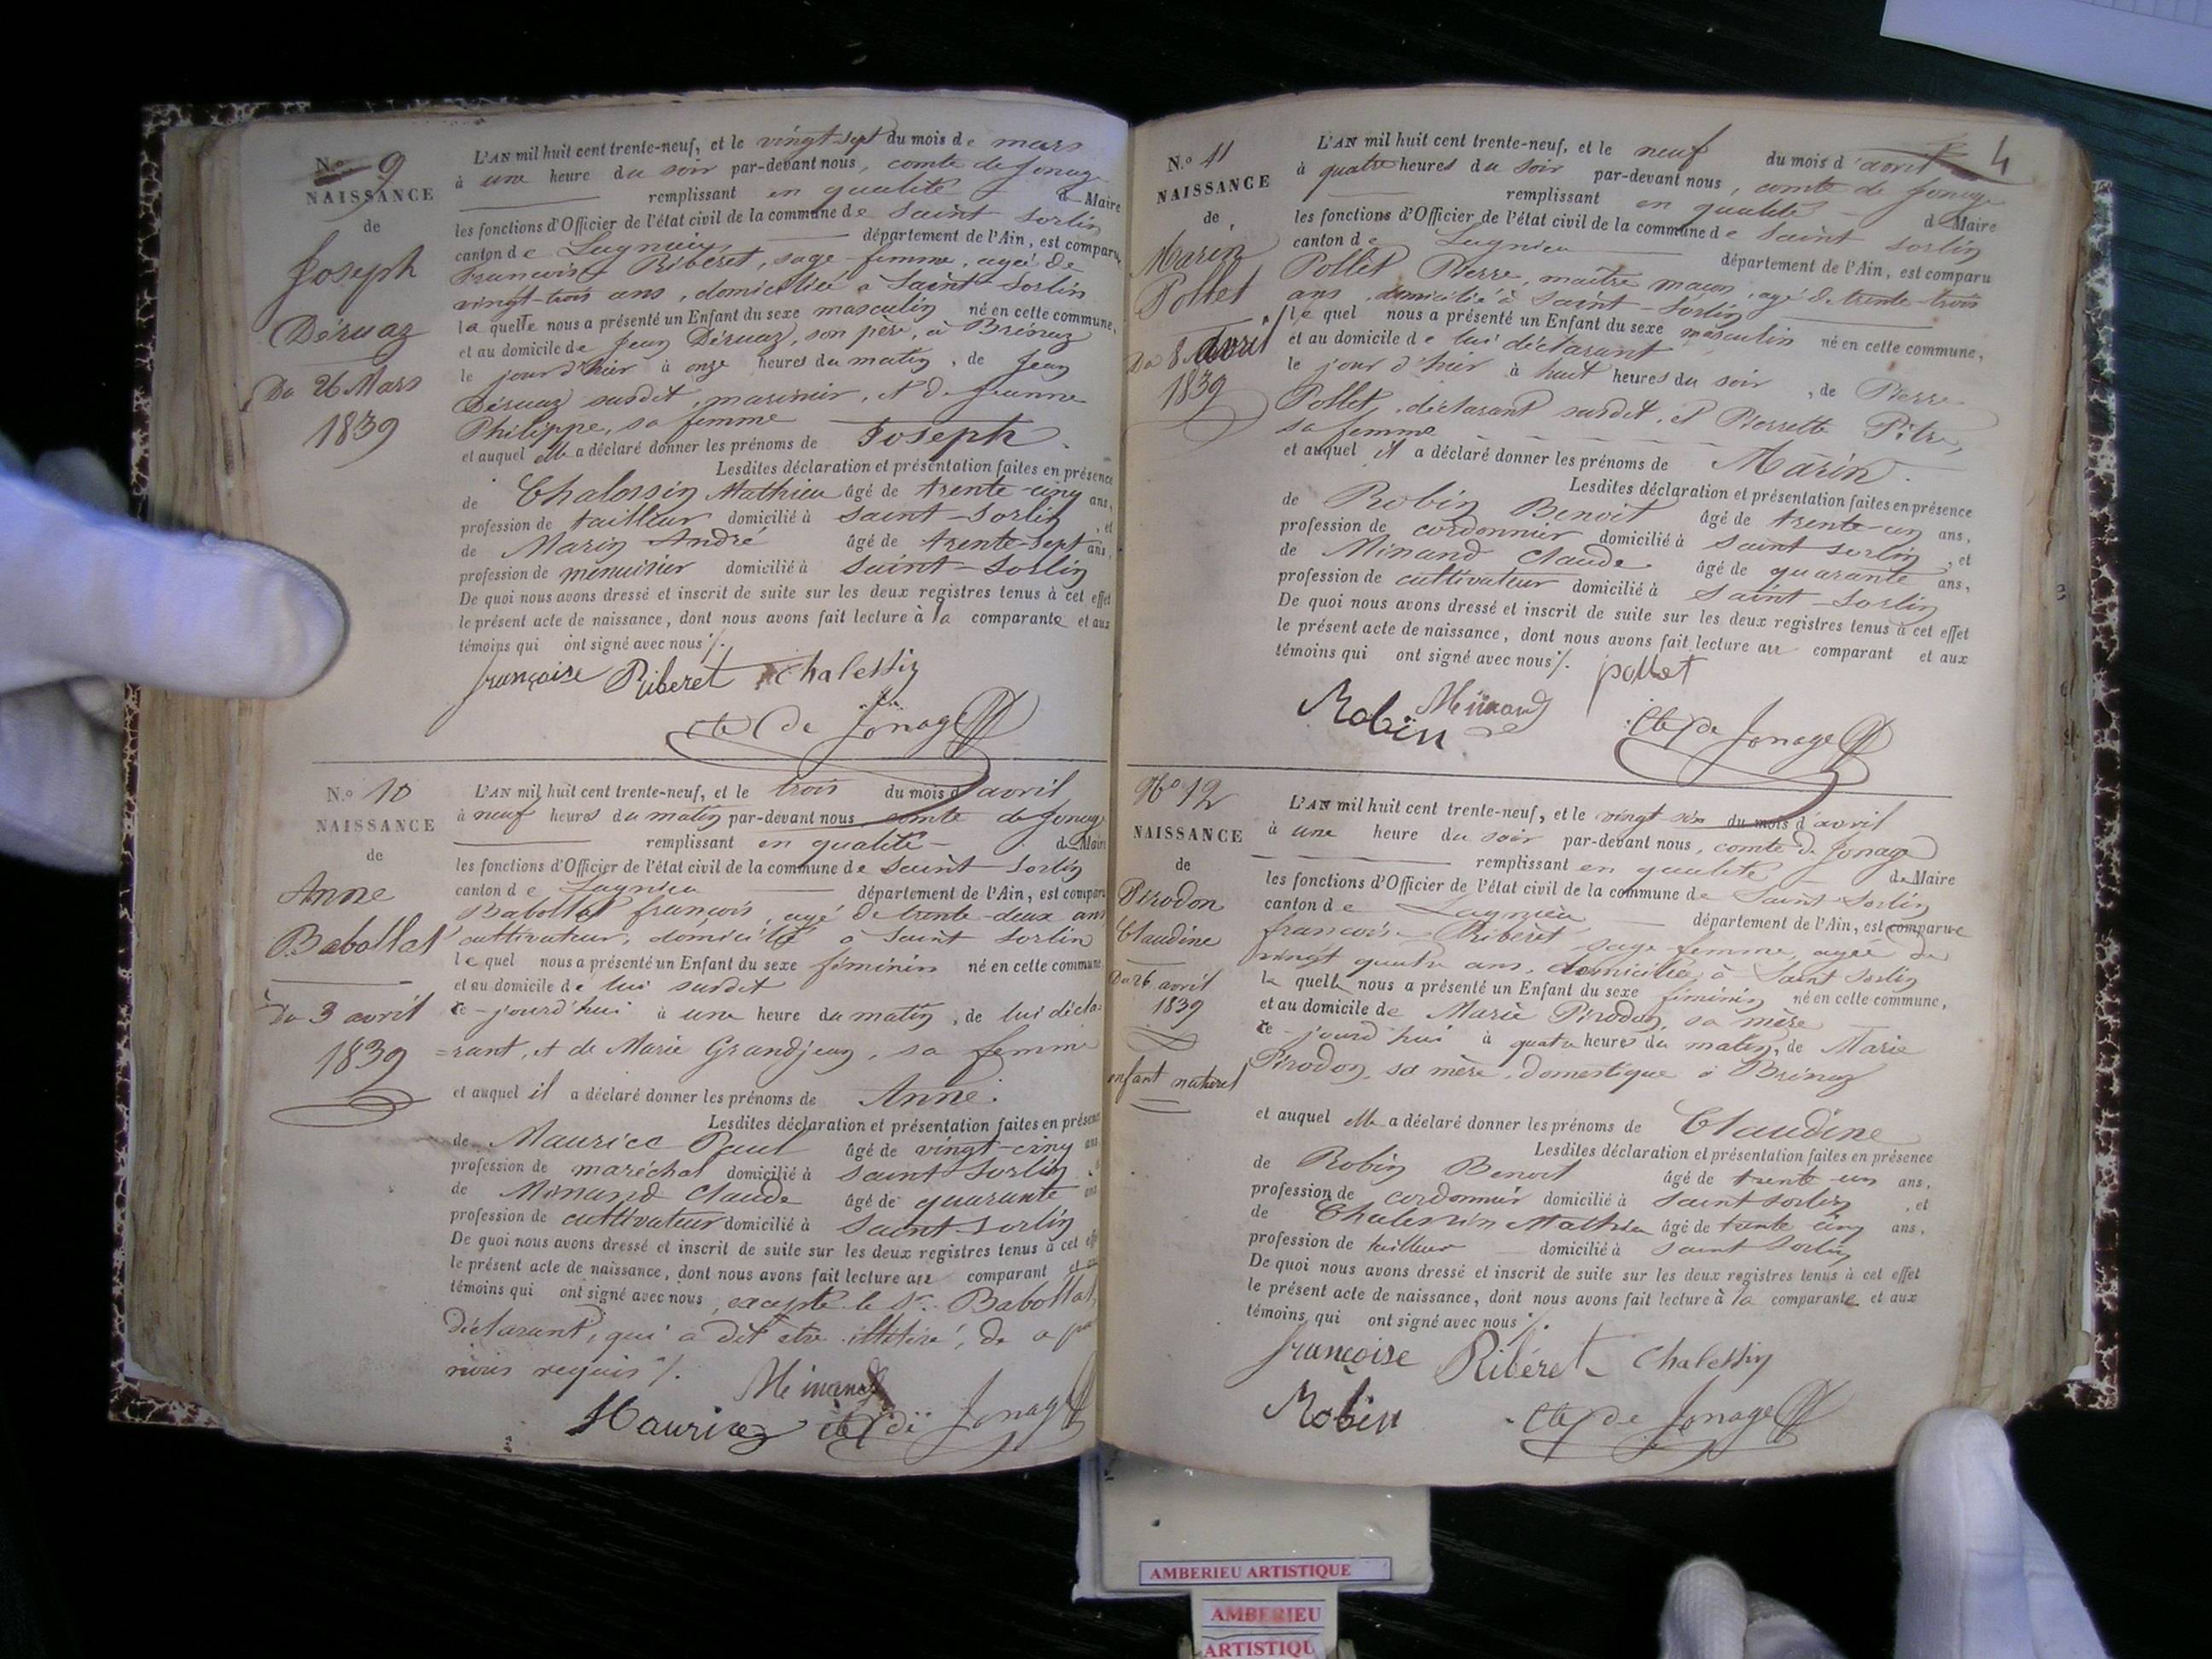 N.o 9
NAISSANCE
de
Joseph
Déruaz
Du 26 Mars
1839
L'AN mil huit cent trente-neuf, et le vingt-sept du mois de mars
à une heure du soir par-devant nous, comte de Jonage
remplissant en qualité de Maire
les fonctions d'Officier de l'état civil de la commune de Saint Sorlin
canton de Lagnieu département de l'Ain, est comparu
Françoise Riberet, sage-femme, agée de
vingt-trois ans, domiciliée à Saint-Sorlin
la quelle nous a présenté un Enfant du sexe masculin né en cette commune,
et au domicile de Jean Déruaz, son père, à Brénaz
le jour d'hier à onze heures du matin, de Jean
Déruaz susdit, marinier, et de Jeanne
Philippe, sa femme
et auquel elle a déclaré donner les prénoms de Joseph.
Lesdites déclaration et présentation faites en présence
de Chalessin Mathieu âgé de trente-cinq ans,
profession de tailleur domicilié à Saint-Sorlin, et
de Marin André âgé de trente-sept ans,
profession de menuisier domicilié à Saint-Sorlin
De quoi nous avons dressé et inscrit de suite sur les deux registres tenus à cet effet
le présent acte de naissance, dont nous avons fait lecture à la comparante et aux
témoins qui ont signé avec nous /.
françoise Riberet Chalessin
Cte de Jonage
N.o 10
NAISSANCE
de
Anne
Babollat
Du 3 avril
1839
L'AN mil huit cent trente-neuf, et le trois du mois d'avril
à neuf heures du matin par-devant nous comte de Jonage
remplissant en qualité de Maire
les fonctions d'Officier de l'état civil de la commune de Saint-Sorlin
canton de Lagnieu département de l'Ain, est comparu
Babollat françois, agé de trente-deux ans
cultivateur, domicilié à Saint Sorlin
le quel nous a présenté un Enfant du sexe féminin né en cette commune
et au domicile de lui susdit
ce-jourd'hui à une heure du matin, de lui décla-
=rant, et de Marie Grandjean, sa femme
et auquel il a déclaré donner les prénoms de Anne.
Lesdites déclaration et présentation faites en présence
de Maurice Paul âgé de vingt-cinq ans
profession de maréchal domicilié à Saint Sorlin, et
de Minand Claude âgé de quarante ans
profession de cultivateur domicilié à Saint-Sorlin
De quoi nous avons dressé et inscrit de suite sur les deux registres tenus à cet effet
le présent acte de naissance, dont nous avons fait lecture au comparant et aux
témoins qui ont signé avec nous, excepté le Sr. Babollat,
déclarant, qui a dit etre illitéré, de ce par
nous requis /.
Minand
Maurice Cte de Jonage
4
N.o 11
NAISSANCE
de
Marin
Pollet
Du 8 avril
1839
L'AN mil huit cent trente-neuf, et le neuf du mois d'avril
à quatre heures du soir par-devant nous, comte de Jonage
remplissant en qualité de Maire
les fonctions d'Officier de l'état civil de la commune de Saint Sorlin
canton de Lagnieu département de l'Ain, est comparu
Pollet Pierre, maître maçon, agé de trente-trois
ans, domicilié à Saint-Sorlin
le quel nous a présenté un Enfant du sexe masculin né en cette commune,
et au domicile de lui déclarant
le jour d'hier à huit heures du soir, de Pierre
Pollet, déclarant susdit, et Pierrette Pitre,
sa femme
et auquel il a déclaré donner les prénoms de Marin.
Lesdites déclaration et présentation faites en présence
de Robin Benoit âgé de trente-un ans,
profession de cordonnier domicilié à Saint Sorlin, et
de Minand Claude âgé de quarante ans,
profession de cultivateur domicilié à Saint-Sorlin
De quoi nous avons dressé et inscrit de suite sur les deux registres tenus à cet effet
le présent acte de naissance, dont nous avons fait lecture au comparant et aux
témoins qui ont signé avec nous /. pollet
Robin Minand Cte de Jonage
No 12
NAISSANCE
de
Pirodon
Claudine
Du 26 avril
1839
enfant naturel
L'AN mil huit cent trente-neuf, et le vingt six du mois d'avril
à une heure du soir par-devant nous, comte de Jonage
remplissant en qualité de Maire
les fonctions d'Officier de l'état civil de la commune de Saint-Sorlin
canton de Lagnieu département de l'Ain, est comparue
françoise Riberet sage femme, agée de
vingt quatre ans, domiciliée à Saint Sorlin
la quelle nous a présenté un Enfant du sexe féminin né en cette commune,
et au domicile de Marie Pirodon, sa mère
ce-jourd'hui à quatre heures du matin, de Marie
Pirodon, sa mère, domestique à Brénaz
et auquel elle a déclaré donner les prénoms de Claudine
Lesdites déclaration et présentation faites en présence
de Robin Benoit âgé de trente un ans,
profession de cordonnier domicilié à Saint Sorlin, et
de Chalessin Mathieu âgé de trente cinq ans,
profession de tailleur domicilié à Saint Sorlin
De quoi nous avons dressé et inscrit de suite sur les deux registres tenus à cet effet
le présent acte de naissance, dont nous avons fait lecture à la comparante et aux
témoins qui ont signé avec nous /.
françoise Ribéret Chalessin
Robin Cte de Jonage
AMBERIEU ARTISTIQUE
AMBERIEU
ARTISTIQU